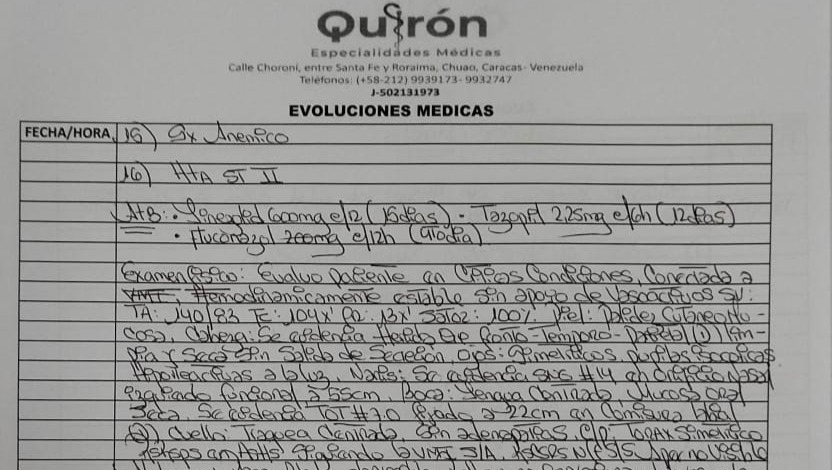 Quirón
Especialidades Médicas
Calle Choroní, entre Santa Fe y Roraima, Chuao, Caracas- Venezuela
Teléfonos: (+58-212) 9939173- 9932747
J-502131973
EVOLUCIONES MEDICAS
FECHA/HORA 15) Sx Anemico
16) HTA ST II
AtB: • Linezolid 600mg c/12 (15dias) - Tazopil 2,25mg c/6h (12dias)
• Fluconazol 200mg c/12h
Examen fisico: Evaluo paciente en Condiciones, Conectada a
VMI, Hemodinamicamente estable sin apoyo de Vasoactivos SV:
TA: 140/83 FC: 104x' FR: 13x' SatO2: 100% Piel: Palidez Cutaneo mu-
cosa, Cabeza: Se evidencia Herida Fronto Temporo-Parietal (D) lim-
pia y Seca Sin Salida de Secrecion, Ojos: Simetricos, pupilas isocoricas
a la luz, Naris: Se evidencia SNG #14 en orificio Nasal
funcional a 55cm, Boca: Lengua Centrada, Mucosa oral
Seca, Se evidencia TOT #7.0 fijado a 22cm en Comisura labial
Cuello: Traquea Centrada, Sin adenopatias, C/P: TORAX Simetrico
VMI S/A,